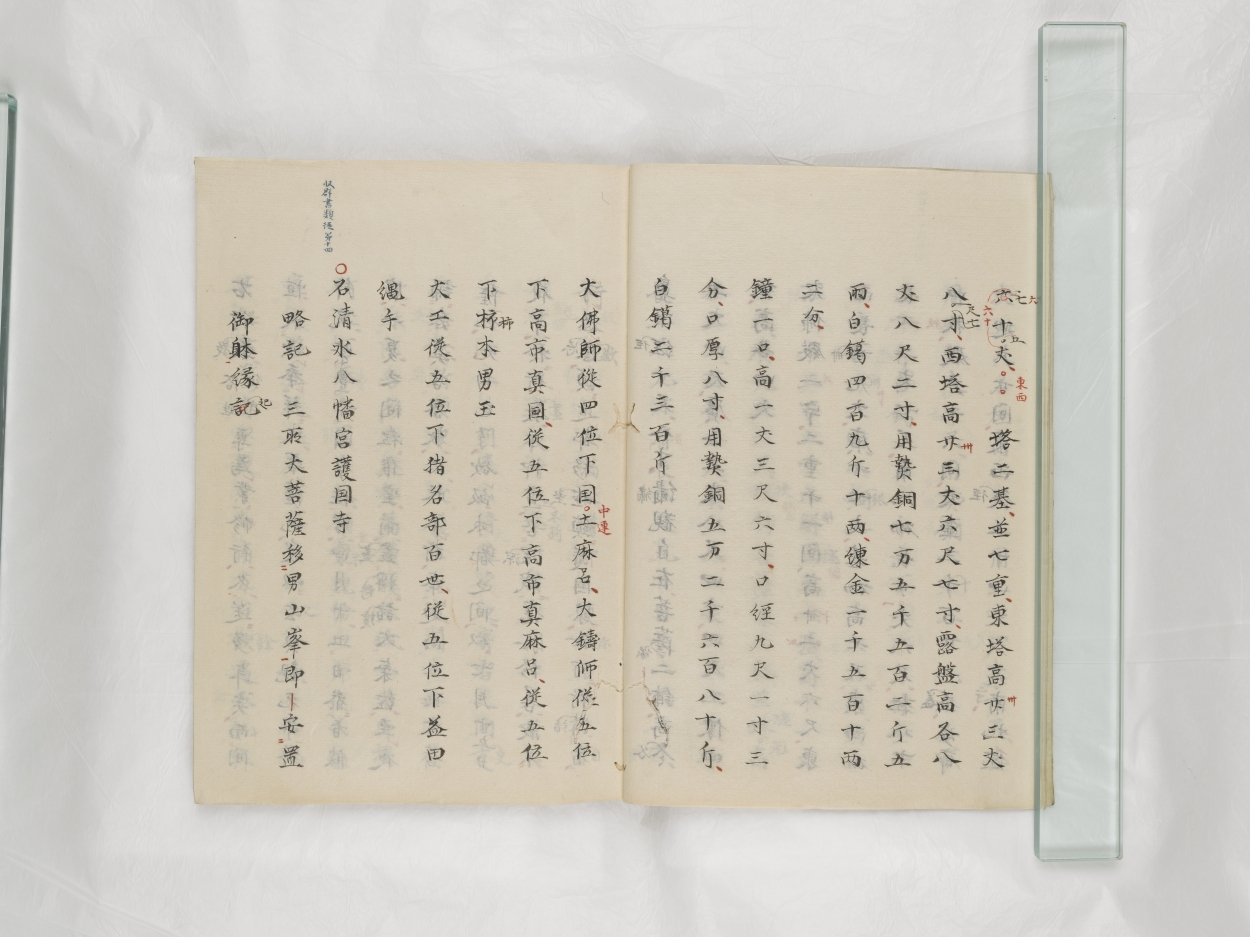 六十丈。塔二基、並七重、東塔高廿三丈
八寸、西塔高廿三丈六尺七寸、露盤高各八
丈八尺二寸、用熟銅七万五千五百二斤五
兩、白鑞四百九斤十兩、練金一千五百十両
二分、
鐘一口、高一丈三尺六寸、口経九尺一寸三
分、口厚八寸、用熟銅五万二千六百八十斤、
白鑞二千三百斤
大佛師従四位下国土麻呂、大鑄師従五位
中連
下高市真国、従五位下高市真麻呂、従五位
下杼本男玉
柿
大工従五位下猪名部百世、従五位下益田
縄手
収群書類従第十四
石清水八幡宮護国寺
略記三所大菩薩移男山峯即安置
御躰縁記
起
東西